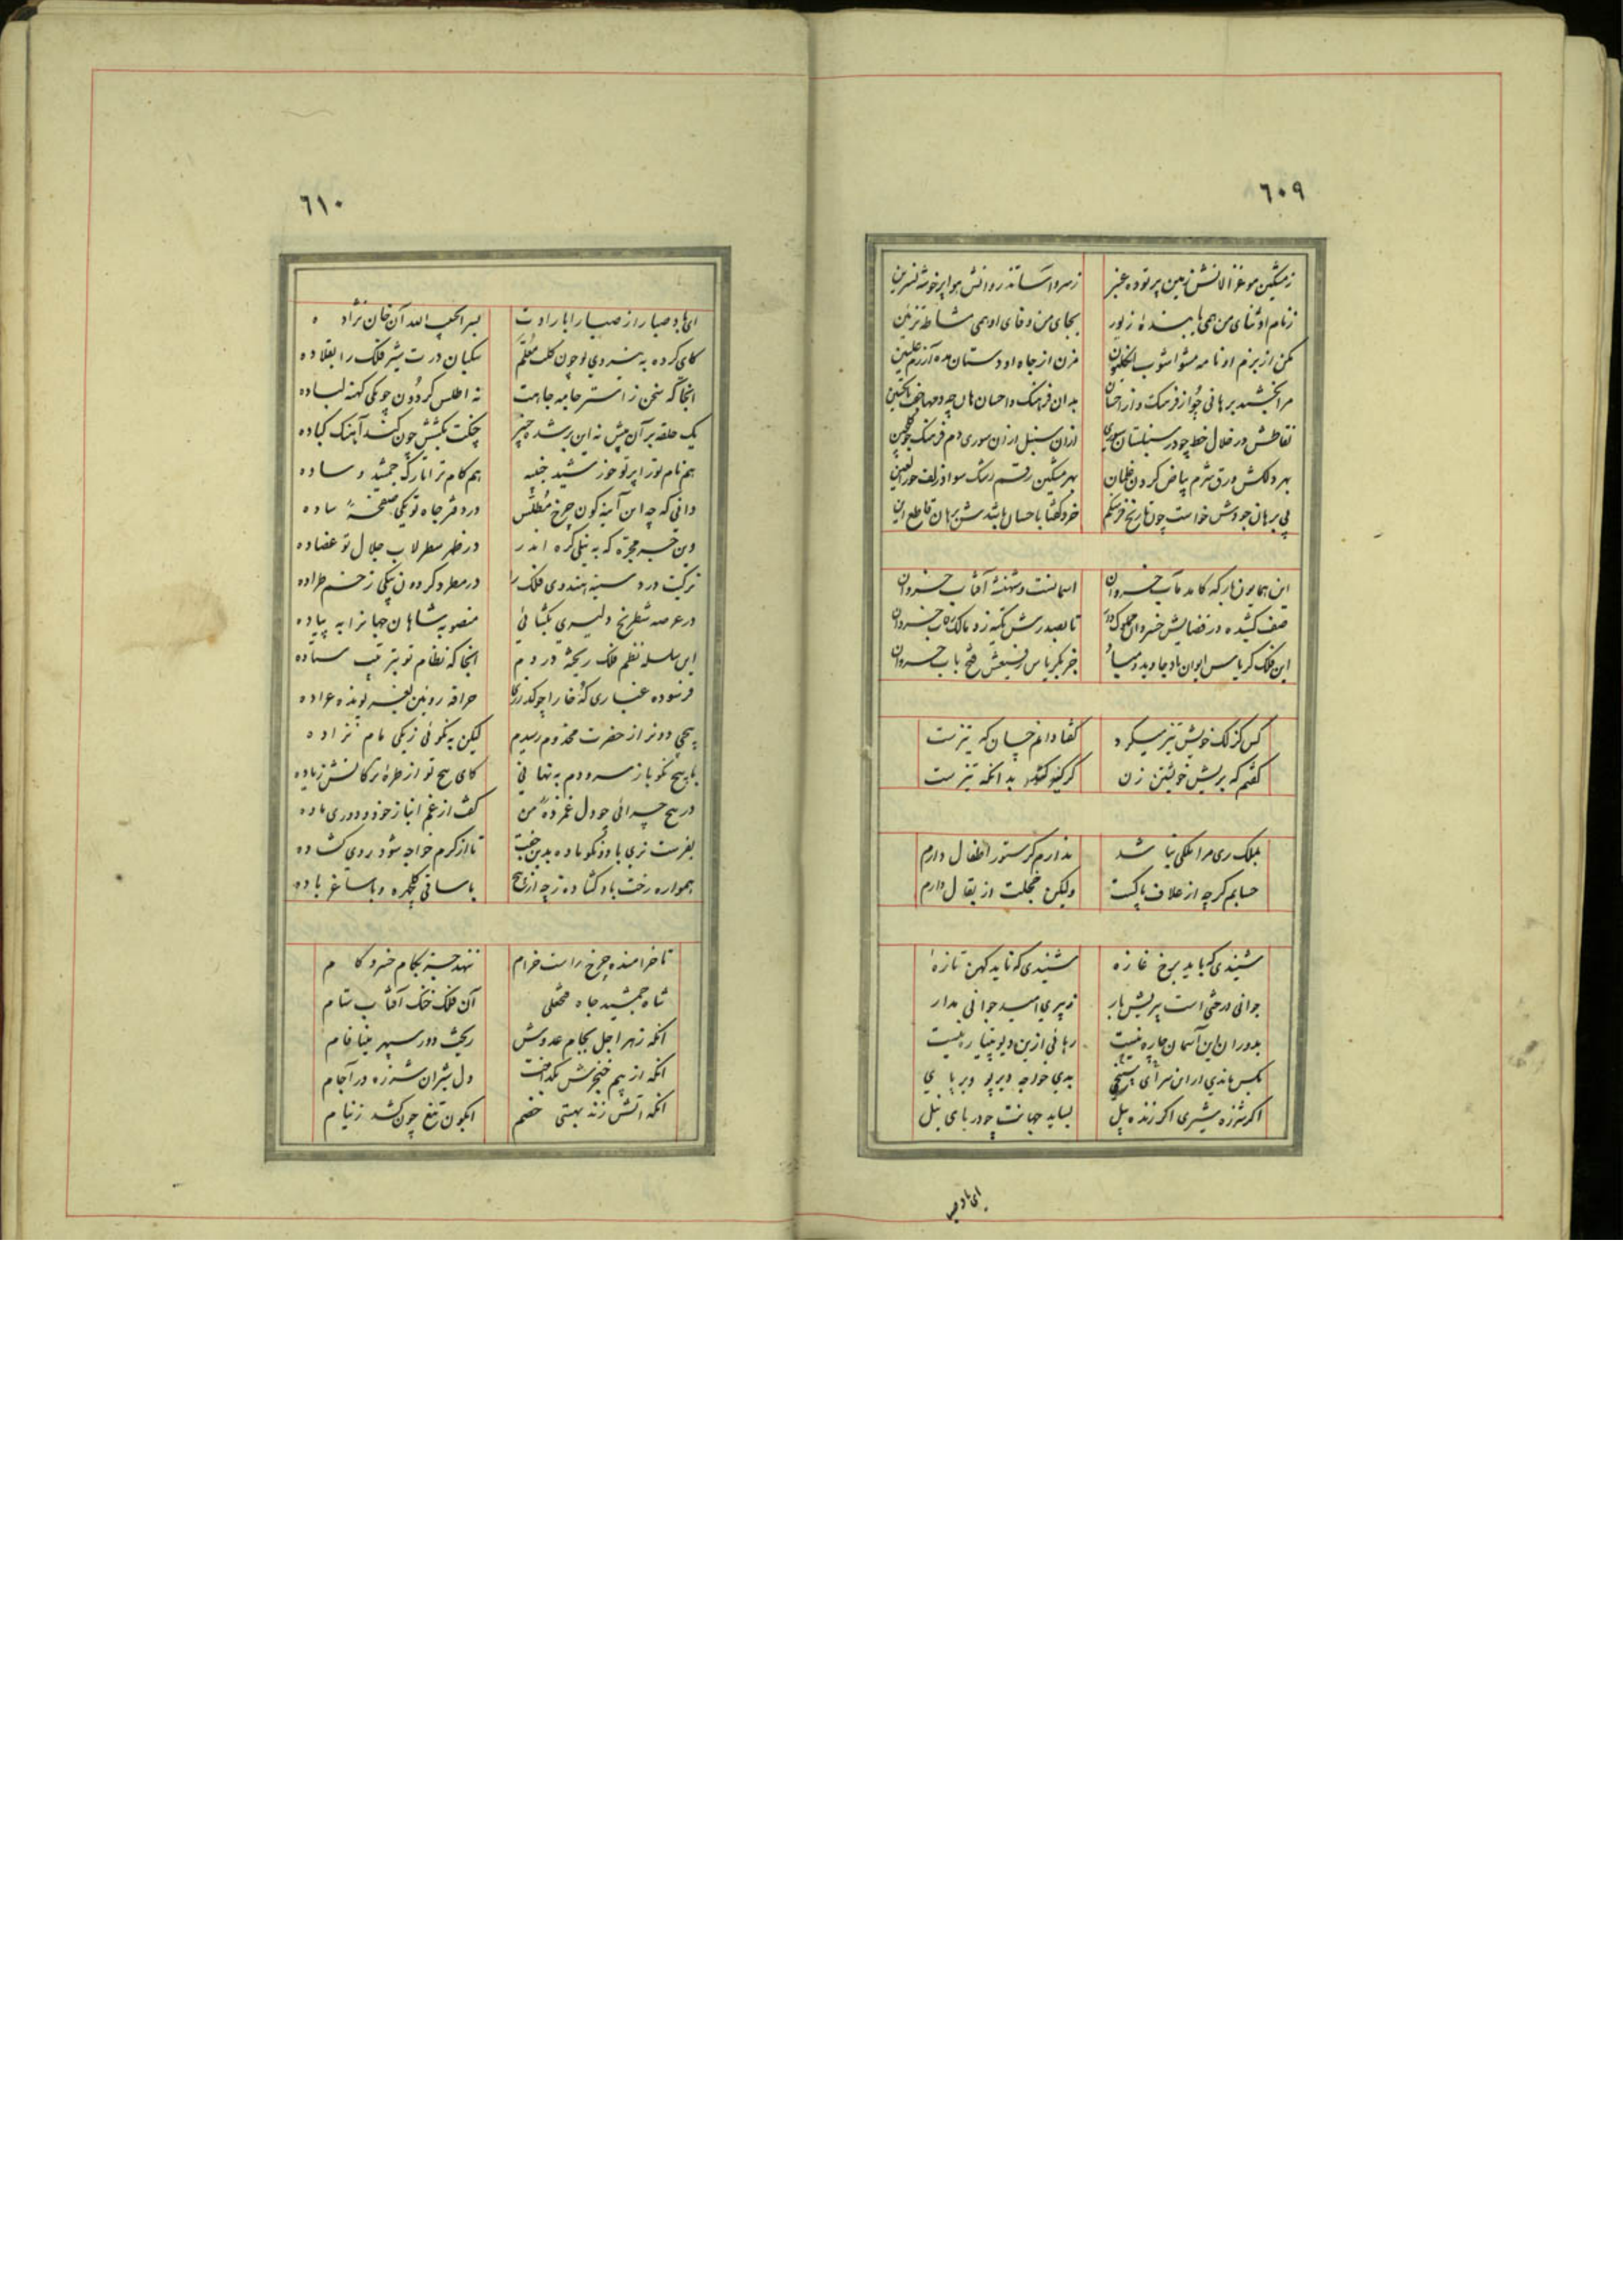 ٦٠٩
زمشکین مو غزالانش زمین پر توده عنبر زسرو آسا تذروانش هوا پر خوشه نسرین
زنام او ثنای من همی یابنده زیور بجای من وفای او همی مشاطه تزیین
مکن از بزم او نامه مشو آشوب مزن از جاه او دستان مده آزرم علیین
مرا بخشید برهانی چو از فرهنگ و از احسان بدان فرهنگ و احسان هان چه درمها
نقاطش در خلال خط چو در سنبلستان سوری ازان سنبل ازان سوری دم فرهنگ
بهر دلکش ورق شرم بیاض گردن غلمان بهر مشکین رقم رشک سواد زلف حورالعین
پی برهان جودش خواست چون تاریخ خرد گفتا باحسان باشدش برهان قاطع این
این همایون بارگه کامد مآب خسروان آسمانست و شهنشه آفتاب خسروان
صف کشیده در فضایش خسروان تا بصدرش تکیه زد مالک رقاب خسروان
این فلک کریاس ایوان باد جاوید و مباد جز بکریاس رفیعش فتح باب خسروان
کس گزلک خویش تیز میکرد گفتا دانم چسان که تیز است
گفتم که بریش خویشتن زن گر بدانکه تیز است
بملک ری مرا ملکی نباشد ندارم گر ستور اطفال دارم
حسابم گرچه از علاف پاکست ولیکن خجلت از بقال دارم
شنیدی که باید برخ غازه شنیدی که ناید کهن تازه
جوانی درختی است پیریش بار ز پیری امید جوانی مدار
بدوران این آسمان چاره نیست رهائی ازین دیو پتیاره نیست
بکس ماندی ار این سرای سپنجی بدی خواجه دیر و دیر پای
اگر شرزه شیری اگر زنده پیل بساید جهانت چو در پای پیل
ای باد صبا
٦١٠
ای باد صبا راز صبا را بارادت بسرا بحبیب الله آن خان نژاده
کای کرده به نیروی تو چون کلب معلم سگبان درت شیر فلک را بقلاده
آنجا که سخن ز استر جامه جاهت نه اطلس گردون چو یکی کهنه لباده
یک حلقه بر آن بیش نه این برشده چنبر چنگت بکشش چون کند آهنگ کباده
هم نام تو را پرتو خورشید جنیبه هم کام ترا تارک جمشید وساده
دانی که چه این آینه گون چرخ مطلس در دفتر جاه تو یکی صفحه ساده
وین جسر مجره که به نیلی کره اندر در ظهر سطرلاب جلال تو عضاده
ترکیت درد سینه هندوی فلک را در مطرد گردون یکی زخم طراده
در عرصه شطرنج دلیری بگشائی منصوبه شاهان جهانرا به پیاده
این سلسله نظم فلک ریخته در دم آنجا که نظام تو بترتیب ستاده
فرسوده غباری که خارا چو گذری حراقه رویین نفیر تو نه عراده
پیچی دو نر از حضرت مخدوم رسیدم لیکن به نکوئی ز یکی مام نزاده
با پیچ نکو باز سرودم به نهانی کای پیچ تو از طره ترکانش زیاده
در پیچ چرائی چو دل غمزده من گفت از غم انباز خود و دوری ماده
بفرست نری با دو نکو ماده بدین جفت تا از کرم خواجه شود روی گشاده
همواره رخت باد گشاده زچه از می با ساقی گلچهره و با ساغر باده
تا خرامنده چرخ راست خرام ننهد جز بکام خسرو گام
شاه جمشید جاه فتحعلی آن فلک خنگ آفتاب ستام
آنکه زهر اجل بجام عدوش ریخت دور سپهر مینا فام
آنکه از بیم خنجرش بگداخت دل شیران شرزه در آجام
آنکه آتش زند بهستی خصم آبگون تیغ چون کشد ز نیام